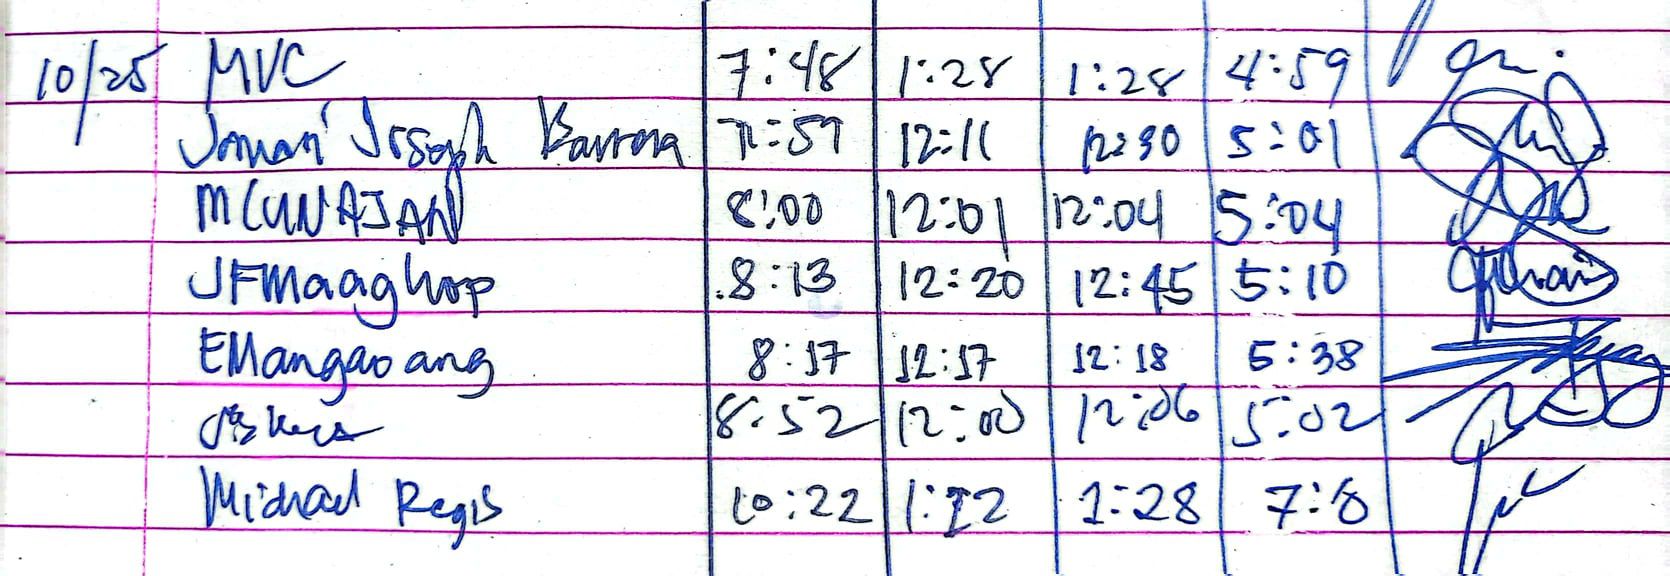 10/25 MVC 7:48 1:28 1:28 4:59
Joseph 7:57 12:11 12:30 5:01
MCUNAJAN 8:00 12:01 12:04 5:04
JFMaaghop 8:13 12:20 12:45 5:10
EMangaoang 8:17 12:17 12:18 5:38
8:52 12:00 12:06 5:02
Michael Regis 10:22 1:22 1:28 7:8